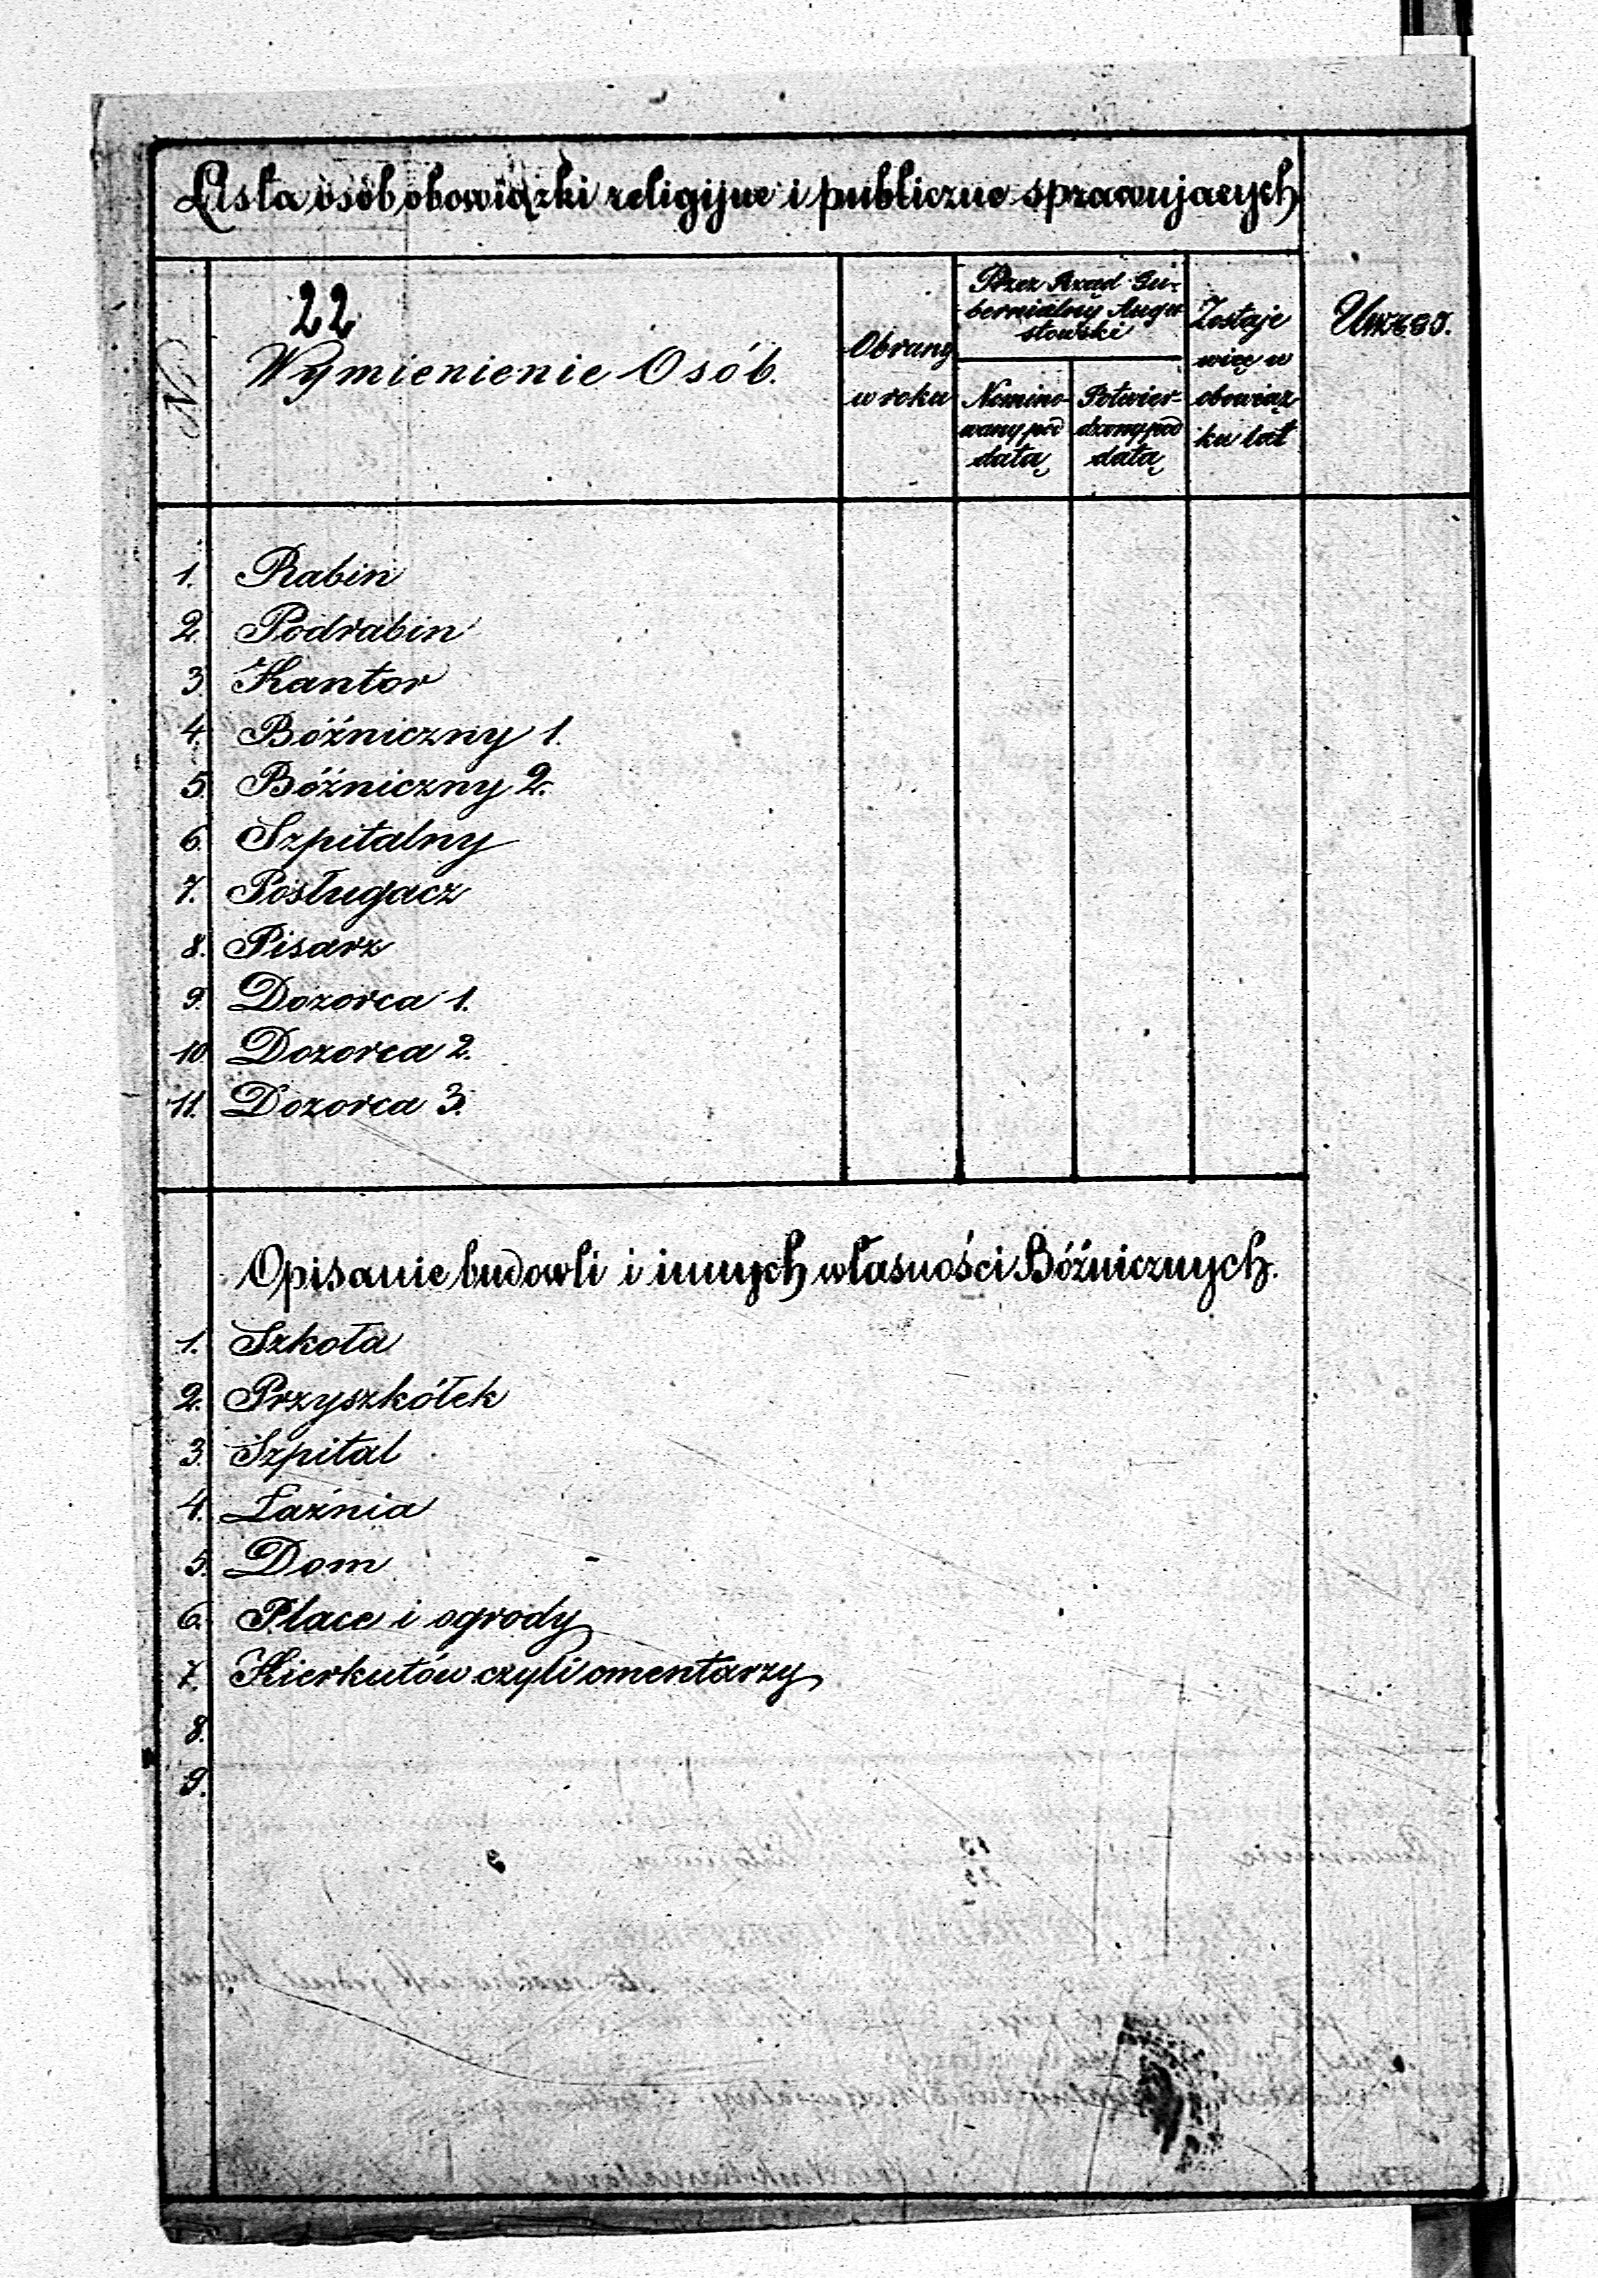 Lista osób obowiązki religijne i publiczne sprawujących
22
No
Wymienienie Osób.
Obrany
w roku
Przez Rząd Gu-
bernialny Augu
stowski
Nomino-
wany pod
datą
Potwier-
dzony pod
datą
Zostaje
więc w
obowiąz
ku lat
1. Rabin
2. Podrabin
3. Kantor
4. Bóźniczny 1.
5. Bóźniczny 2.
6. Szpitalny
7. Posługacz
8. Pisarz
9. Dozorca 1.
10 Dozorca 2.
11. Dozorca 3.
Opisanie budowli i innych własności Bóźnicznych.
1. Szkoła
2. Przyszkółek
3. Szpital
4. Łaźnia
5. Dom
6. Place i ogrody
7. Kierkutów czyli omentarzy
8.
9.